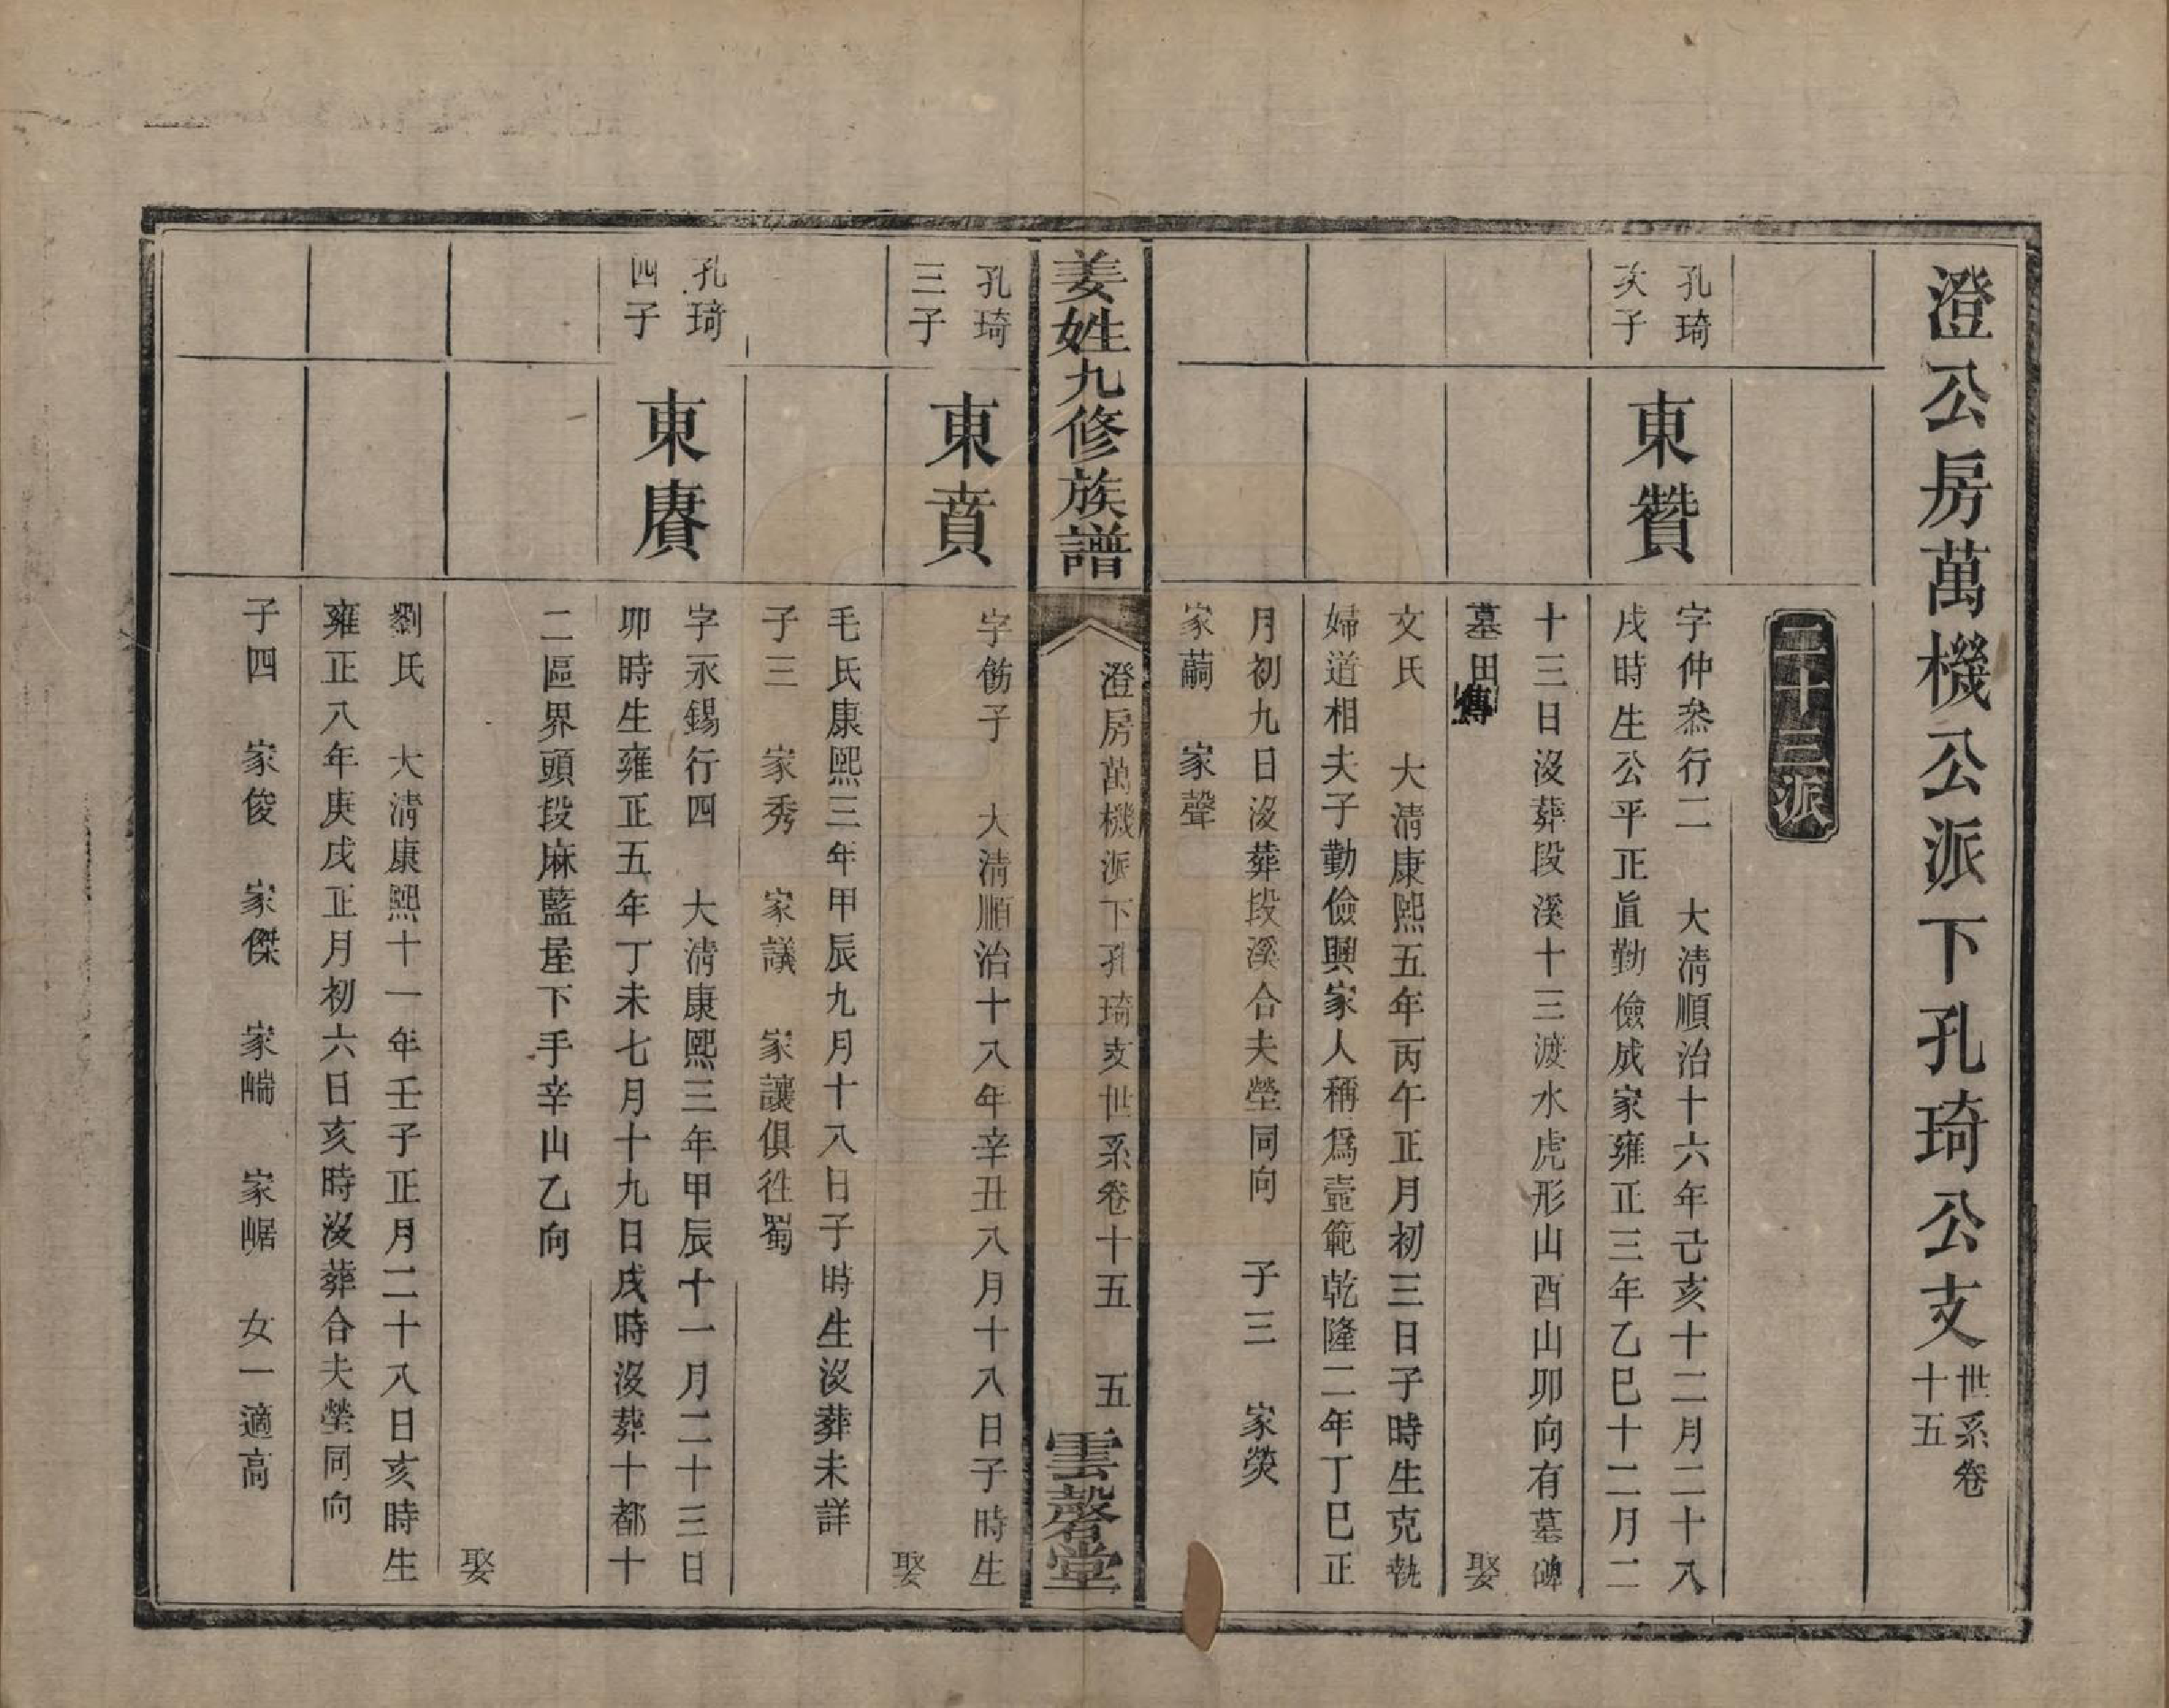 澄公房萬機公派下孔琦公支世系卷十五
二十三派
孔琦次子
東贊
字仲叅行二　大清順治十六年己亥十二月二十八
戌時生公平正眞勤儉成家雍正三年乙巳十二月二
十三日沒葬段溪十三渡水虎形山酉山卯向有墓碑
墓田傳　娶
文氏　大清康熙五年丙午正月初三日子時生克執
婦道相夫子勤儉興家人稱爲壼範乾隆二年丁巳正
月初九日沒葬段溪合夫塋同向　子三　家熒
家蕭　家聲
姜姓九修族譜
澄房萬機派下孔琦支世系卷十五　五
雲磬堂
孔琦三子
東賁
字飭子　大清順治十八年辛丑八月十八日子時生
娶
毛氏康熙三年甲辰九月十八日子時生沒葬未詳
子三　家秀　家議　家讓俱徃蜀
孔琦四子
東賡
字永錫行四　大清康熙三年甲辰十一月二十三日
卯時生雍正五年丁未七月十九日戌時沒葬十都十
二區界頭段麻藍屋下手辛山乙向
娶
劉氏　大清康熙十一年壬子正月二十八日亥時生
雍正八年庚戌正月初六日亥時沒葬合夫塋同向
子四　家俊　家傑　家㟨　家崌　女一適高